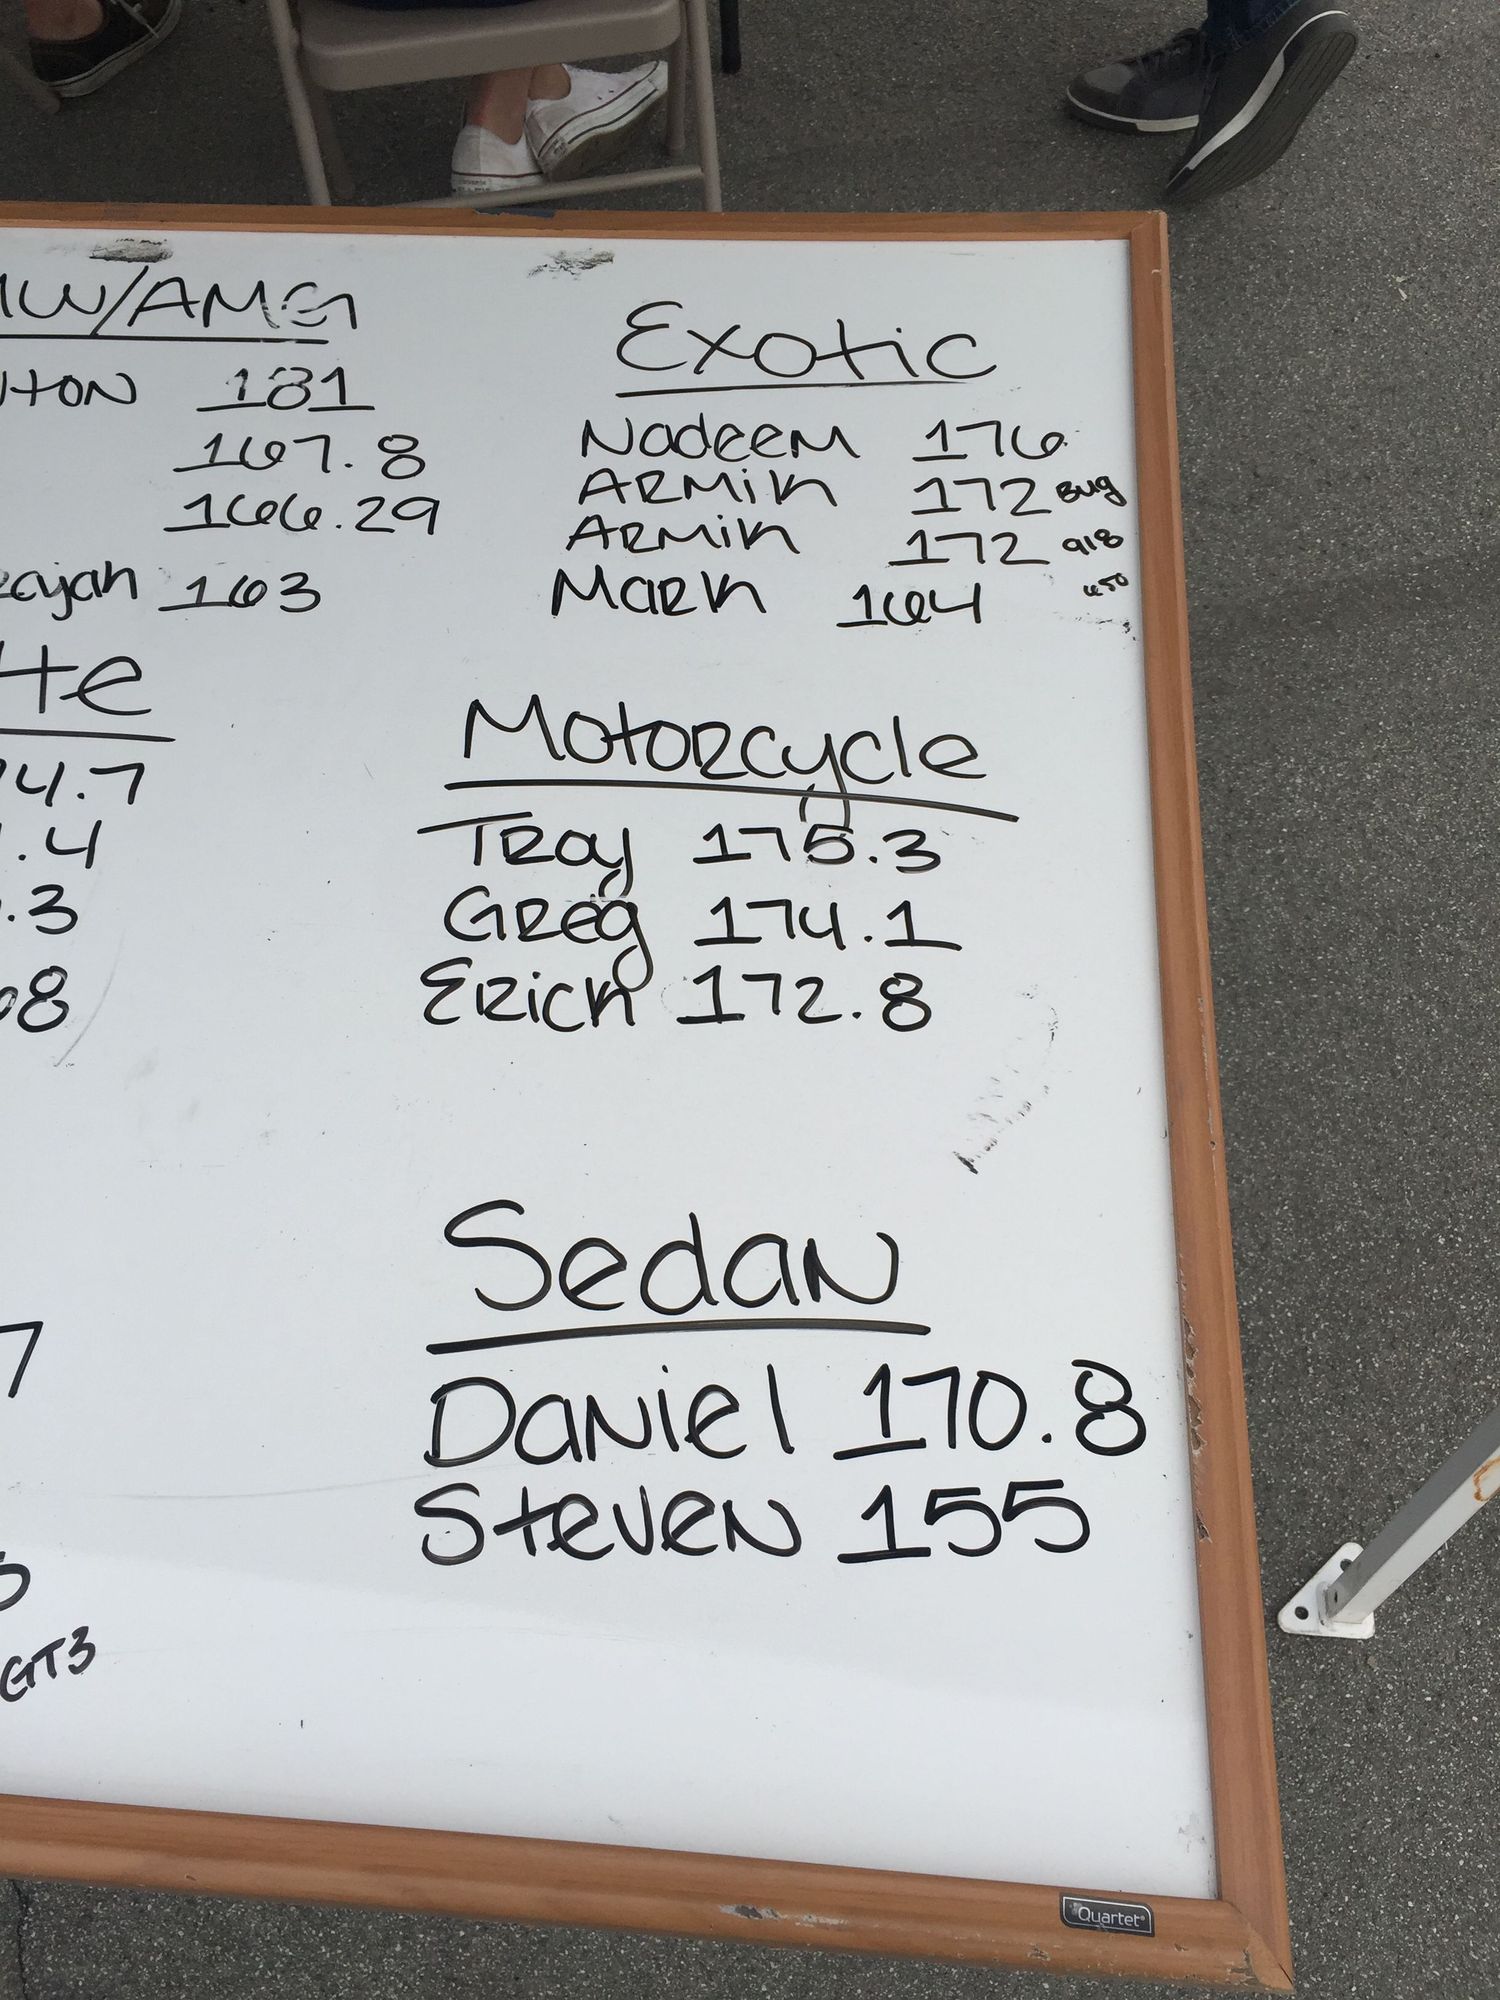 /AMG
181
167.8
166.29
163
Exotic
Nadeem 176
Armin 172 Bug
Armin 172 918
Mark 164
4.7
.4
.3
8
Motorcycle
Troy 175.3
Greg 174.1
Erick 172.8
7
GT3
Sedan
Daniel 170.8
Steven 155
Quartet